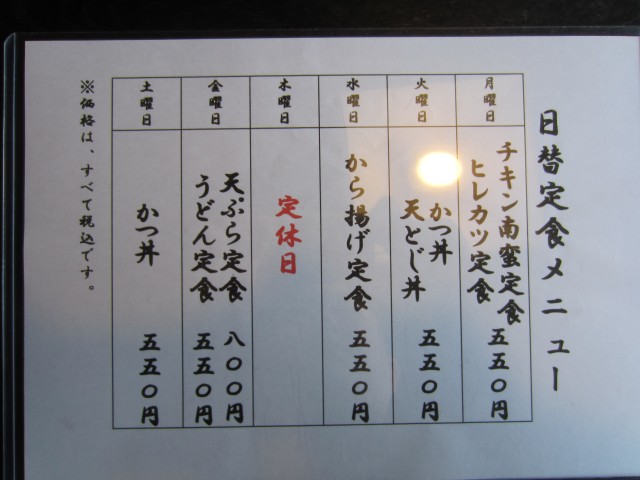 日替定食メニュー
月曜日
チキン南蛮定食
ヒレカツ定食
五五〇円
火曜日
かつ丼
天とじ丼
五五〇円
水曜日
から揚げ定食
五五〇円
木曜日
定休日
金曜日
天ぷら定食 八〇〇円
うどん定食 五五〇円
土曜日
かつ丼
五五〇円
※価格は、すべて税込です。